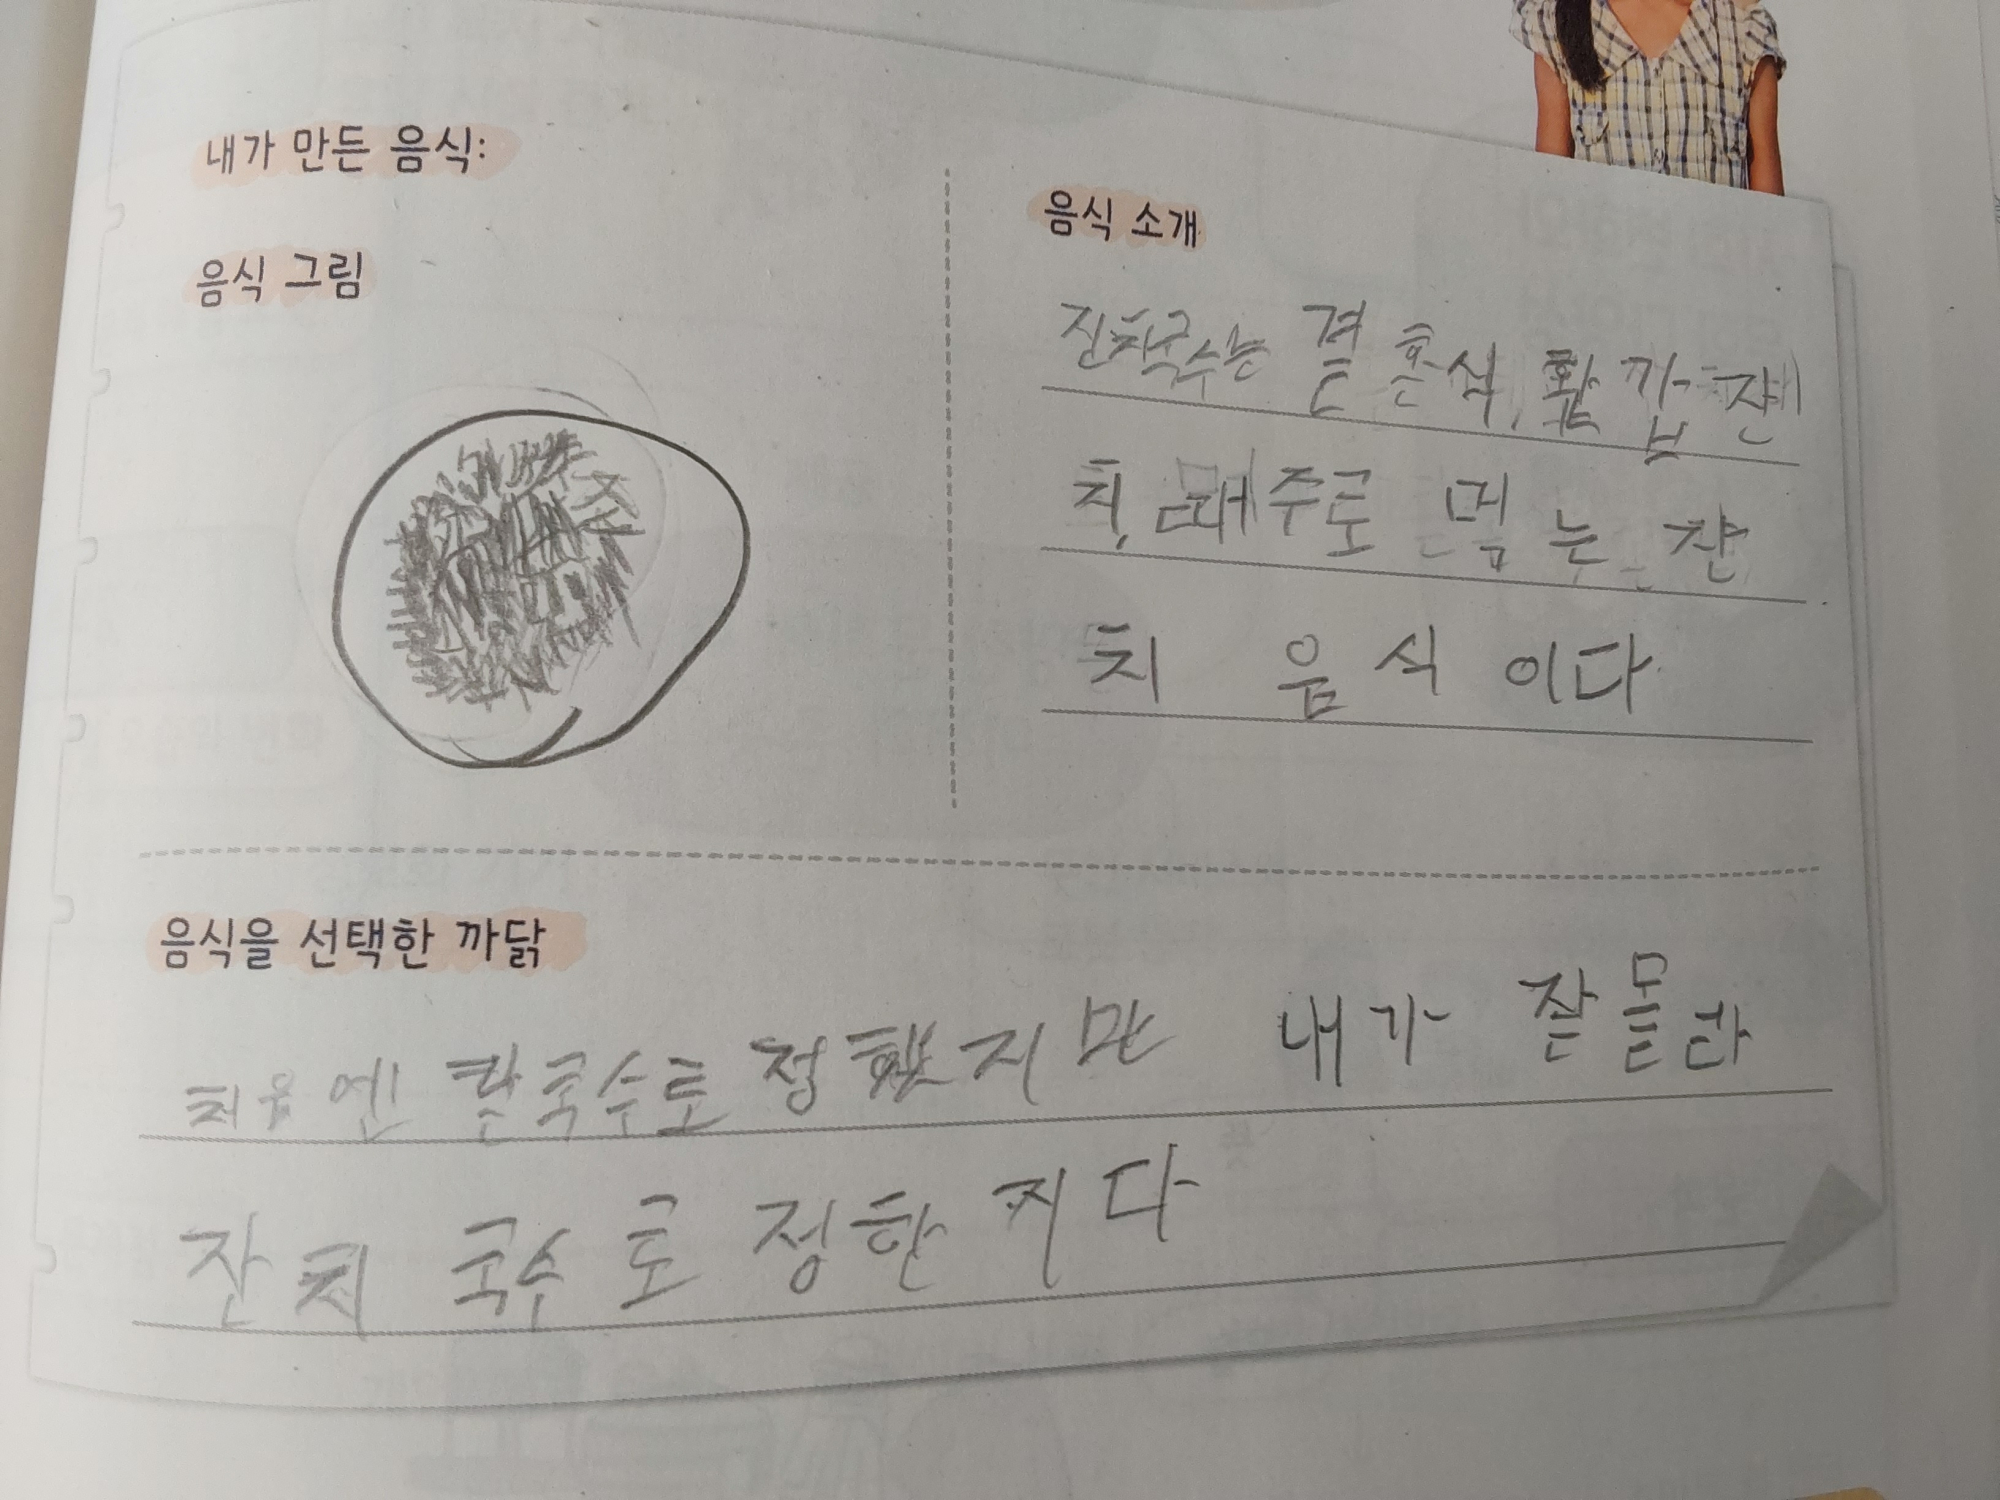 내가 만든 음식:
음식 그림
음식 소개
잔치국수는 결혼식, 환갑 잔
치, 때 주로 먹는 잔
치 음식이다
음식을 선택한 까닭
처음엔 칼국수로 정했지만 내가 잘 몰라
잔치 국수로 정한 거다